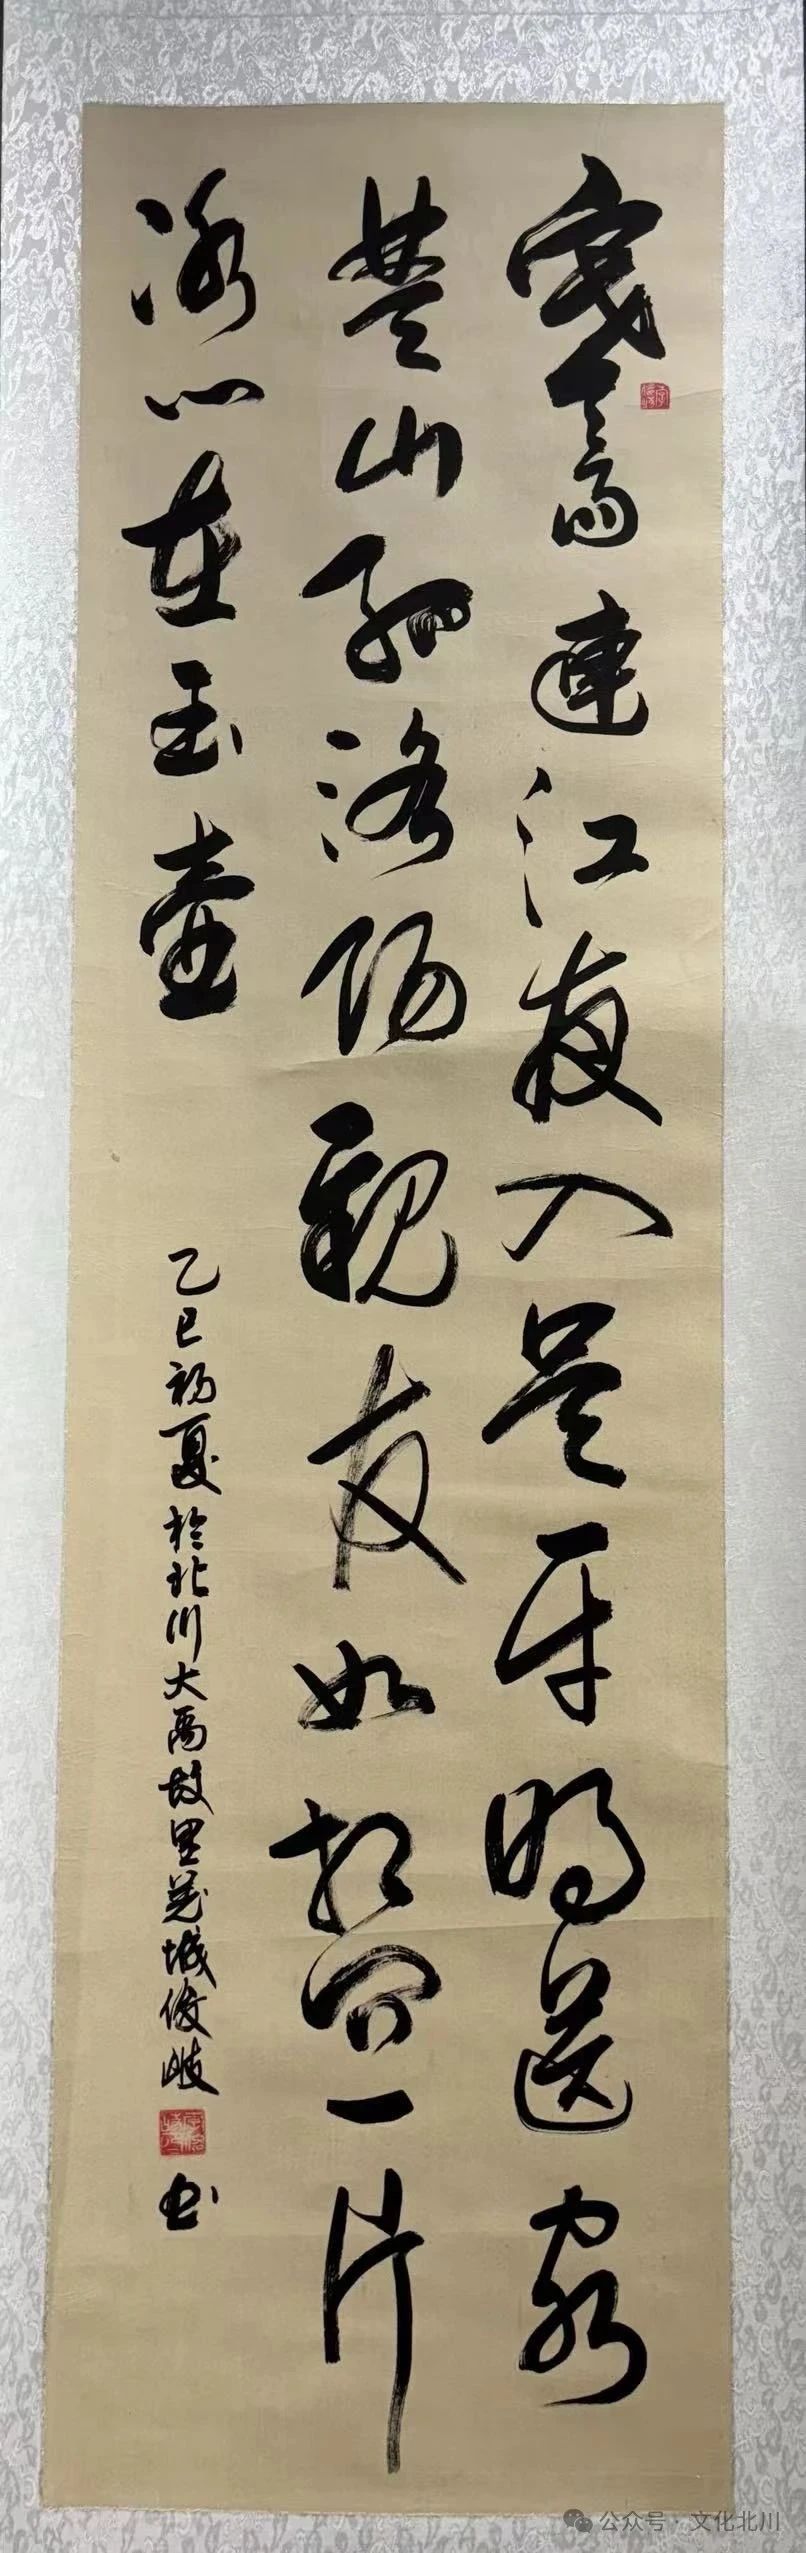 寒雨連江夜入吳平明送客
楚山孤洛陽親友如相問一片
冰心在玉壺
乙巳初夏於北川大禹故里羌城俊岐书
公众号·文化北川